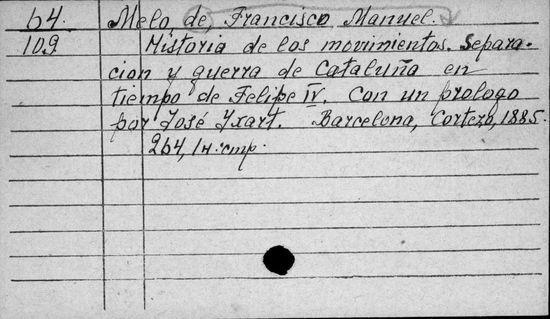 64. Melo, de, Francisco Manuel.
109 Historia de los movimientos. Separa-
cion y guerra de Cataluña en
tiempo de Felipe IV. Con un prologo
por José Yxart. Barcelona, Cortezo, 1885.
264, 1н. стр.